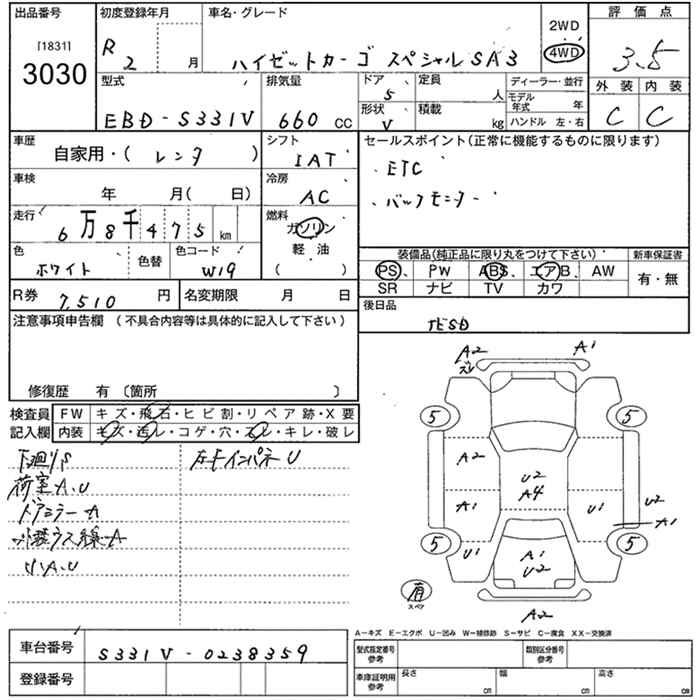 出品番号
[1831]
3030
初度登録年月
R
2 月
車名・グレード
ハイゼットカーゴ スペシャルSA3
2WD
4WD
評価点
3.5
型式
EBD-S331V
排気量
660 cc
ドア
5
定員
人
形状
V
積載
kg
ディーラー・並行
モデル年式 年
ハンドル 左・右
外装 内装
C C
車歴
自家用・( レンタ )
シフト
IAT
セールスポイント(正常に機能するものに限ります)
・ETC
・バックモニター
車検
年 月( )
冷房
AC
走行
6万8千475 km
燃料
ガソリン
軽油
( )
色
ホワイト
色替
色コード
W19
装備品(純正品に限り丸をつけて下さい)
PS、 PW ABS、エアB、AW
SR ナビ TV カワ
新車保証書
有・無
R券
7,510 円
名変期限 月 日
後日品
注意事項申告欄 (不具合内容等は具体的に記入して下さい)
修復歴 有 〔箇所 〕
検査員記入欄
FW キズ・飛石・ヒビ割・リペア跡・X要
内装 キズ・汚レ・コゲ・穴・スレ・キレ・破レ
下廻りS
荷室A.U
ドアミラーA
小A.U
インパネU
A2
A1
5
5
A2
U2
A4
A1
U1
U2
A1
5
5
U1
A1
U2
有
スペア
A2
A-キズ E-エクボ U-凹み W-補修跡 S-サビ C-腐食 XX-交換済
車台番号
S331V-0238359
登録番号
型式指定番号
参考
類別区分番号
参考
車庫証明用
参考
長さ cm
幅 cm
高さ cm